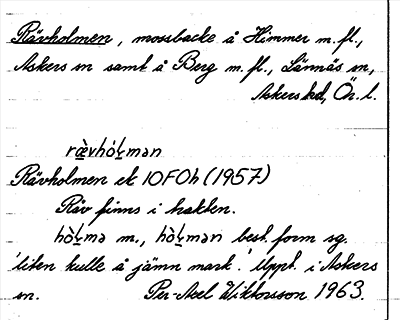 Rävholmen, mossbacke å Himmer m. fl.,
Askers sn samt å Berg m. fl., Lännäs sn,
Askers hd, Ör. l.
rævhòlmən
Rävholmen ek 10F0h (1957)
Räv finns i trakten.
hòlmə m., hòlmən best. form sg.
'liten kulle å jämn mark.' Uppt. i Askers
sn. Per-Axel Wiktorsson 1963.